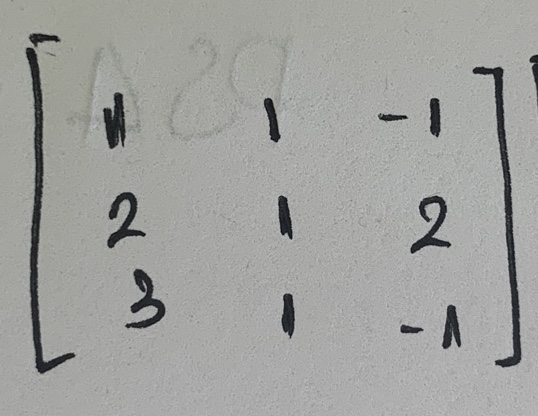 1 1 -1
2 1 2
3 1 -1